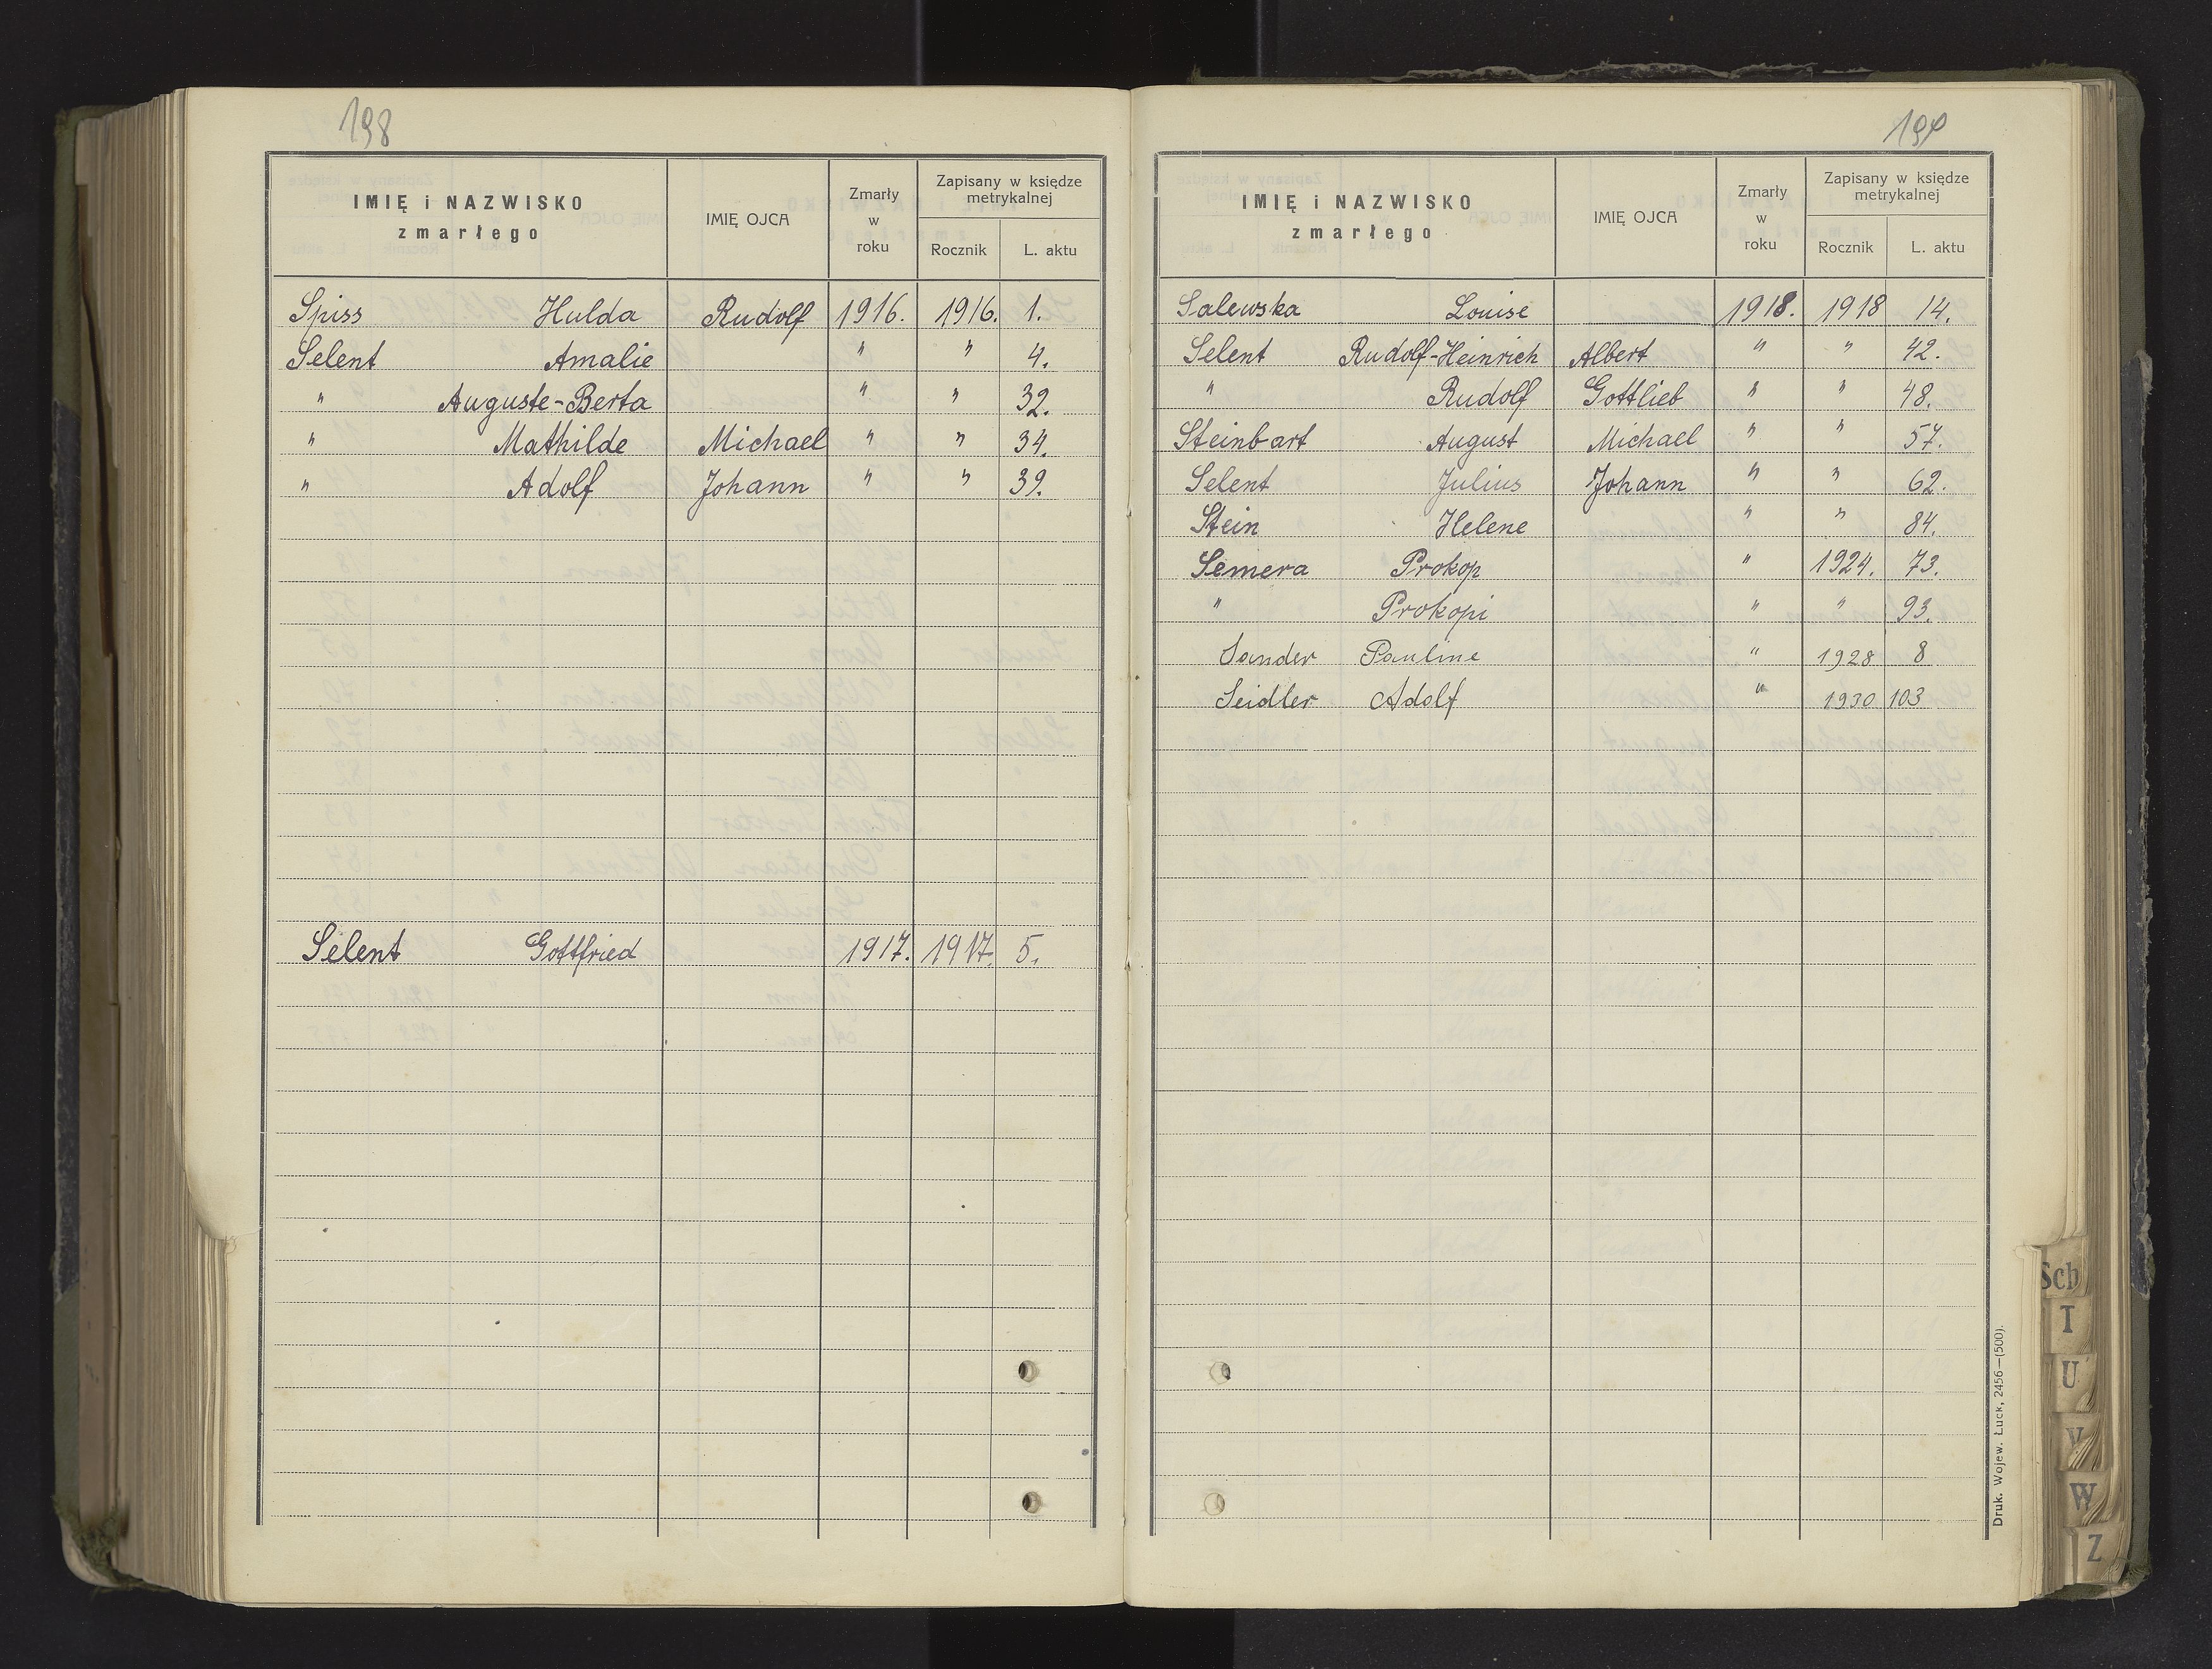 198
IMIĘ i NAZWISKO zmarłego IMIĘ OJCA Zmarły w roku Zapisany w księdze metrykalnej Rocznik L. aktu
Spiss Hulda Rudolf 1916. 1916. 1.
Selent Amalie " " 4.
" Auguste-Berta " " 32.
" Mathilde Michael " " 34.
" Adolf Johann " " 39.
Selent Gottfried 1917. 1917. 5.
199
IMIĘ i NAZWISKO zmarłego IMIĘ OJCA Zmarły w roku Zapisany w księdze metrykalnej Rocznik L. aktu
Salewska Louise 1918. 1918 14.
Selent Rudolf-Heinrich Albert " " 42.
" Rudolf Gottlieb " " 48.
Steinbart August Michael " " 57.
Selent Julius Johann " " 62.
Stein Helene " " 84.
Semera Prokop " 1924. 73.
" Prokopi " " 93.
Sander Pauline " 1928 8
Seidler Adolf " 1930 103
Druk. Wojew. Łuck, 2456—(500).
Sch
T
U
V
W
Z